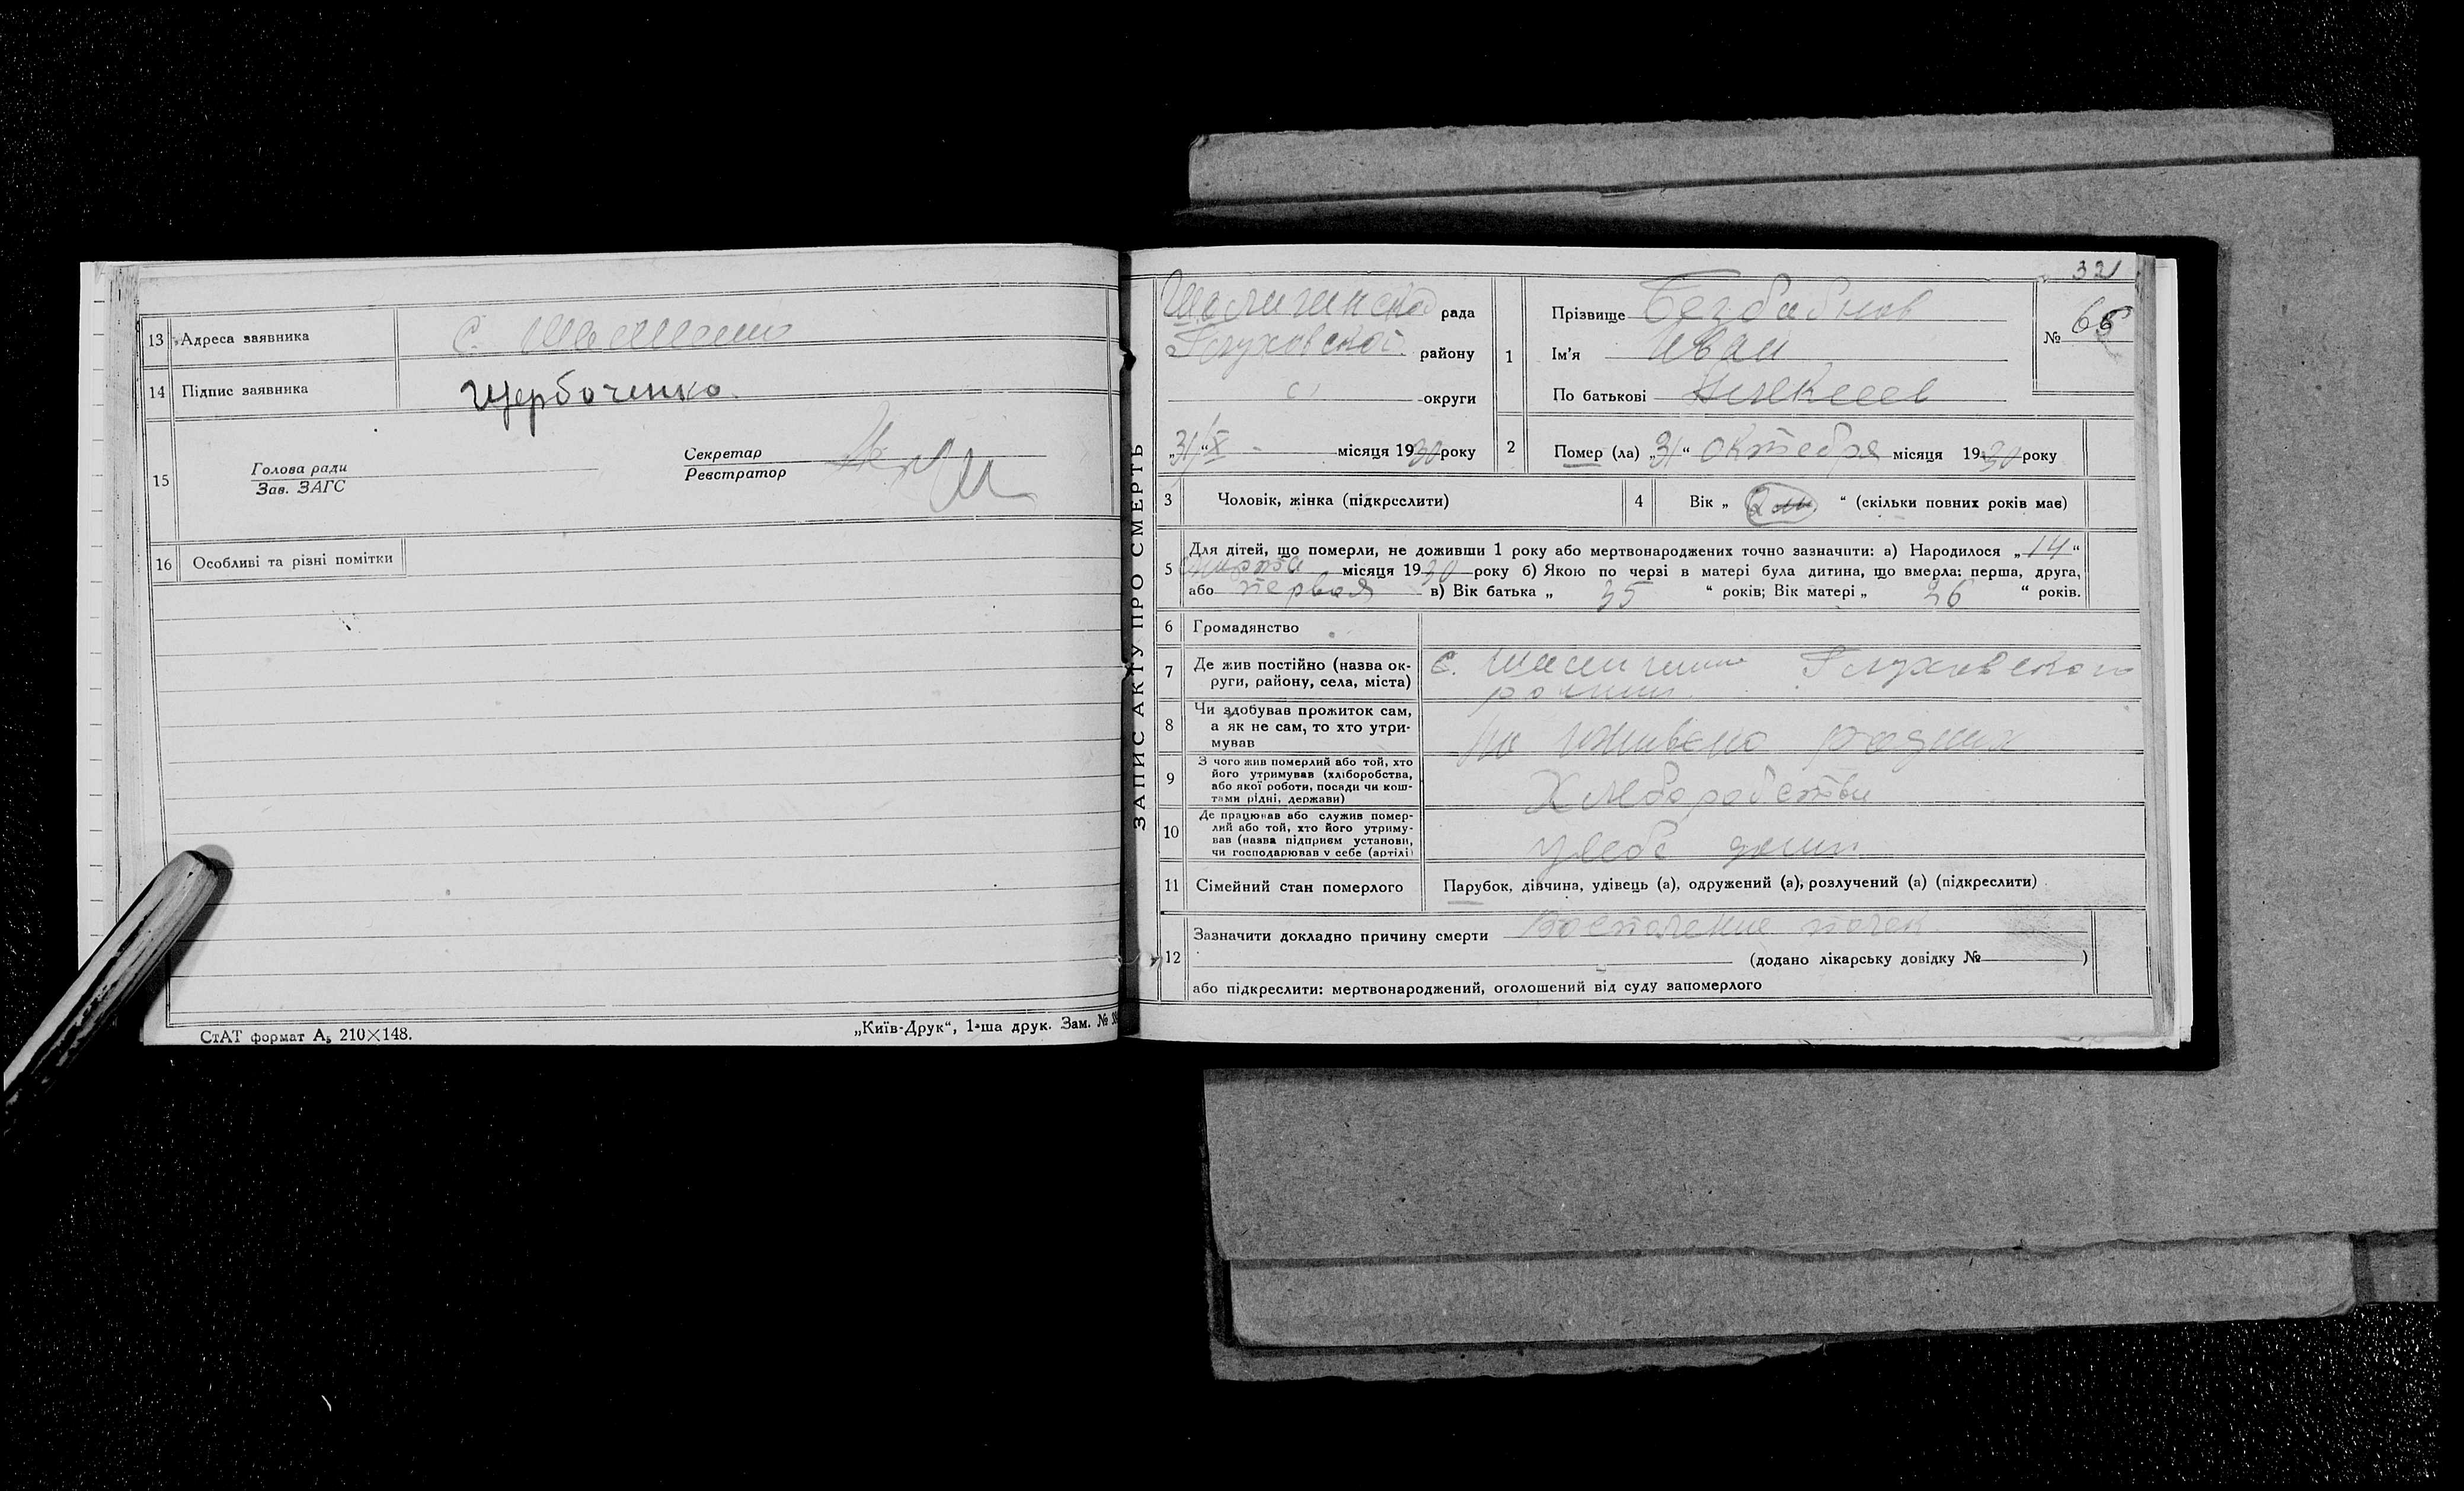 13 Адреса заявника С.
14 Підпис заявника Щербоченко.
15 Голова ради
Зав. ЗАГС
Секретар
Реєстратор
16 Особливі та різні помітки
СтАТ формат А5 210×148.
„Київ-Друк“, 1-ша друк. Зам. №
ЗАПИС АКТУ ПРО СМЕРТЬ
321
Шалигинской рада
Глуховской району
округи
„31“ X місяця 1930 року
1 Прізвище
Ім'я Иван
По батькові
№ 66
2 Помер (ла) „31“ октебря місяця 1930 року
3 Чоловік, жінка (підкреслити)
4 Вік „ “ (скільки повних років має)
5 Для дітей, що померли, не доживши 1 року або мертвонароджених точно зазначити: а) Народилося „14“
марта місяця 1930 року б) Якою по черзі в матері була дитина, що вмерла: перша, друга,
або первая в) Вік батька „ 35 “ років; Вік матері „ 26 “ років.
6 Громадянство
7 Де жив постійно (назва ок-
руги, району, села, міста)
с. Шалигино Глуховского
8 Чи здобував прожиток сам,
а як не сам, то хто утри-
мував
на иживено родних
9 З чого жив померлий або той, хто
його утримував (хліборобства,
або якої роботи, посади чи кош-
тами рідні, держави)
Хлеборобства
10 Де працював або служив помер-
лий або той, хто його утриму-
вав (назва підприєм установи,
чи господарював у себе (артілі)
у себе дома
11 Сімейний стан померлого
Парубок, дівчина, удівець (а), одружений (а), розлучений (а) (підкреслити)
12 Зазначити докладно причину смерти Воспаление почек
(додано лікарську довідку № )
або підкреслити: мертвонароджений, оголошений від суду запомерлого